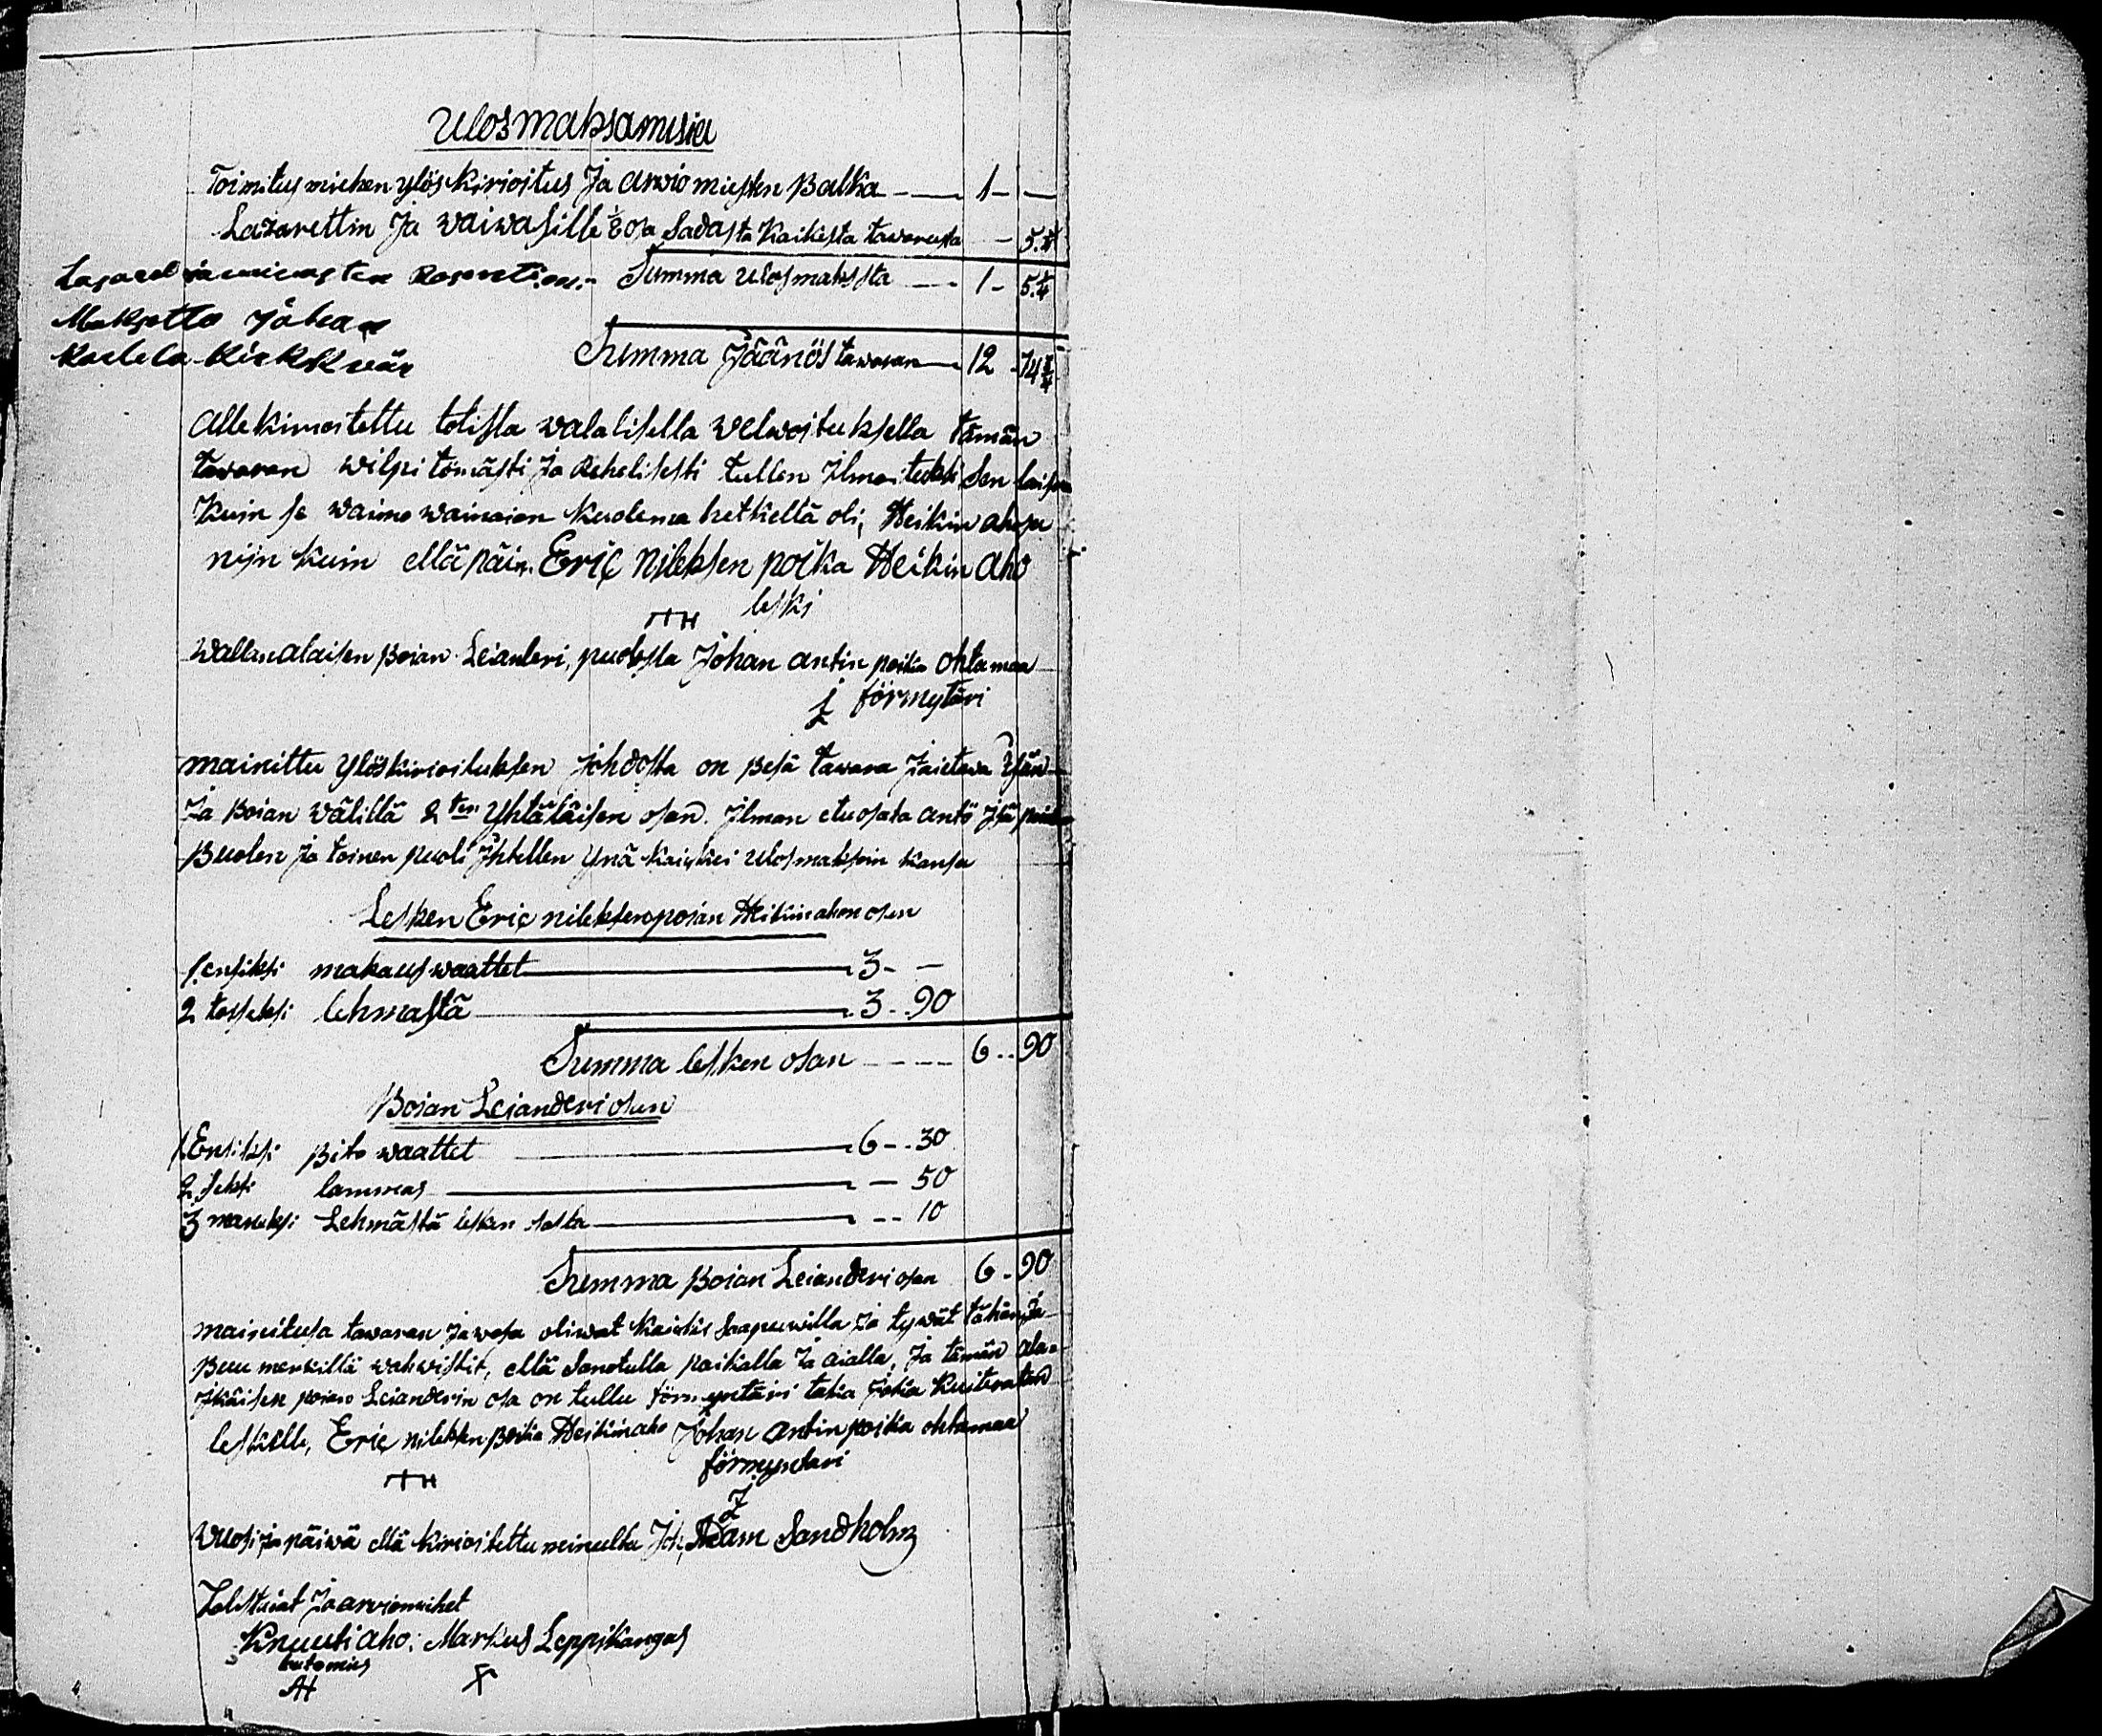 Ulosmaksamisia
Toimitus miehen ylöskirioitus Ja arwio miesten Balka 1 - -
Lazarettin Ja waiwasille ⅛ osa Sadasta Kaikesta tawarasta - 5.¼
Summa Ulosmakssta 1 - 5.¼
Maksettu
Summa Jäänös tawaran 12 - 74 ¾
alle kirioitettu totisella walalisella welwoituksella tämän
tawaran wilpitömästi Ja Rehelisesti tullen Ilmoitetuksi Sen laisna
Kuin se waimo wainaian kuolema hetkeltä oli, Heikin ahosa
nijn kuin ellä päin. Eriç Nileksen poika Heikin aho
leski
Wallanalaisen Boian Leianteri, puolesta Johan antin poika ohtamaa
förmytäri
mainittu Ylöskirioituksen johdosta on Pesä tawara Jaietawa Isän
Ja Boian wälillä 2 ten Yhtäläisen osan. Ilman etuosata antö Isä poialle
Buolen Ja toinen puoli Ihtellen Ynä kaickei Ulosmaksoin kansa
Lesken Eriç nileksenpoian Heikinahon osan
1. ensiksi makaus waattet 3 - -
2 toiseksi lehmästä 3 - 90
Summa lesken osan 6 - 90
Boian Leianderi osan
1 Ensiksi Pito waattet 6 - 30
2 seksi lammas - 50
3 maneksi Lehmästä lesken - - 10
Summa Boian Leianderi osan 6 - 90
mainitusa tawaran jawosa oliwat kaickis Saapuwilla Ja tywät tähän, Ja
Buu merkillä wahwistit, ellä Sanotulla paikalla Ja aialla, Ja tämän ala-
Ikäisen poian Leianderin osa on tullu förmyntäri takia
leskelle, Eriç nileksen Poika Heikinaho Johan antin poika ohtamaa
förmyndari
Wuosi Ja päiwä ellä kirioitettu minulta Joh, Adam Sandholm
Totistaiat Ja arwiomihet
Knuuti aho. Markus Leppikangas
lautamies
AH